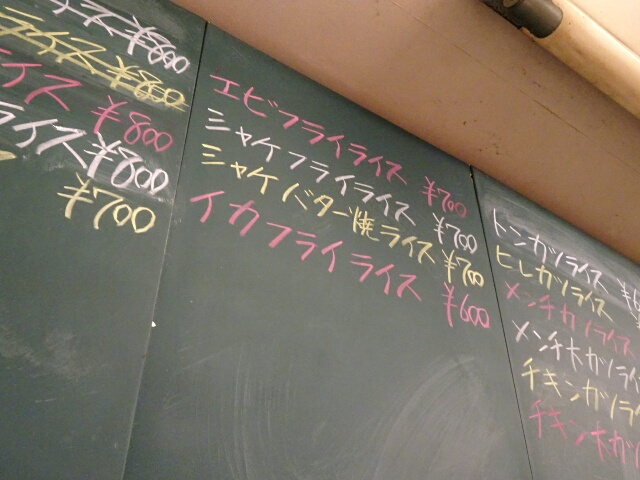 イス ¥800
ライス ¥800
イス ¥800
ライス ¥800
¥700
エビフライライス ¥700
シャケフライライス ¥700
シャケバター焼ライス ¥700
イカフライライス ¥600
トンカツライス ¥
ヒレカツライス
メンチカツライス
メンチポカツライ
チキンカツライ
チキンポカツ